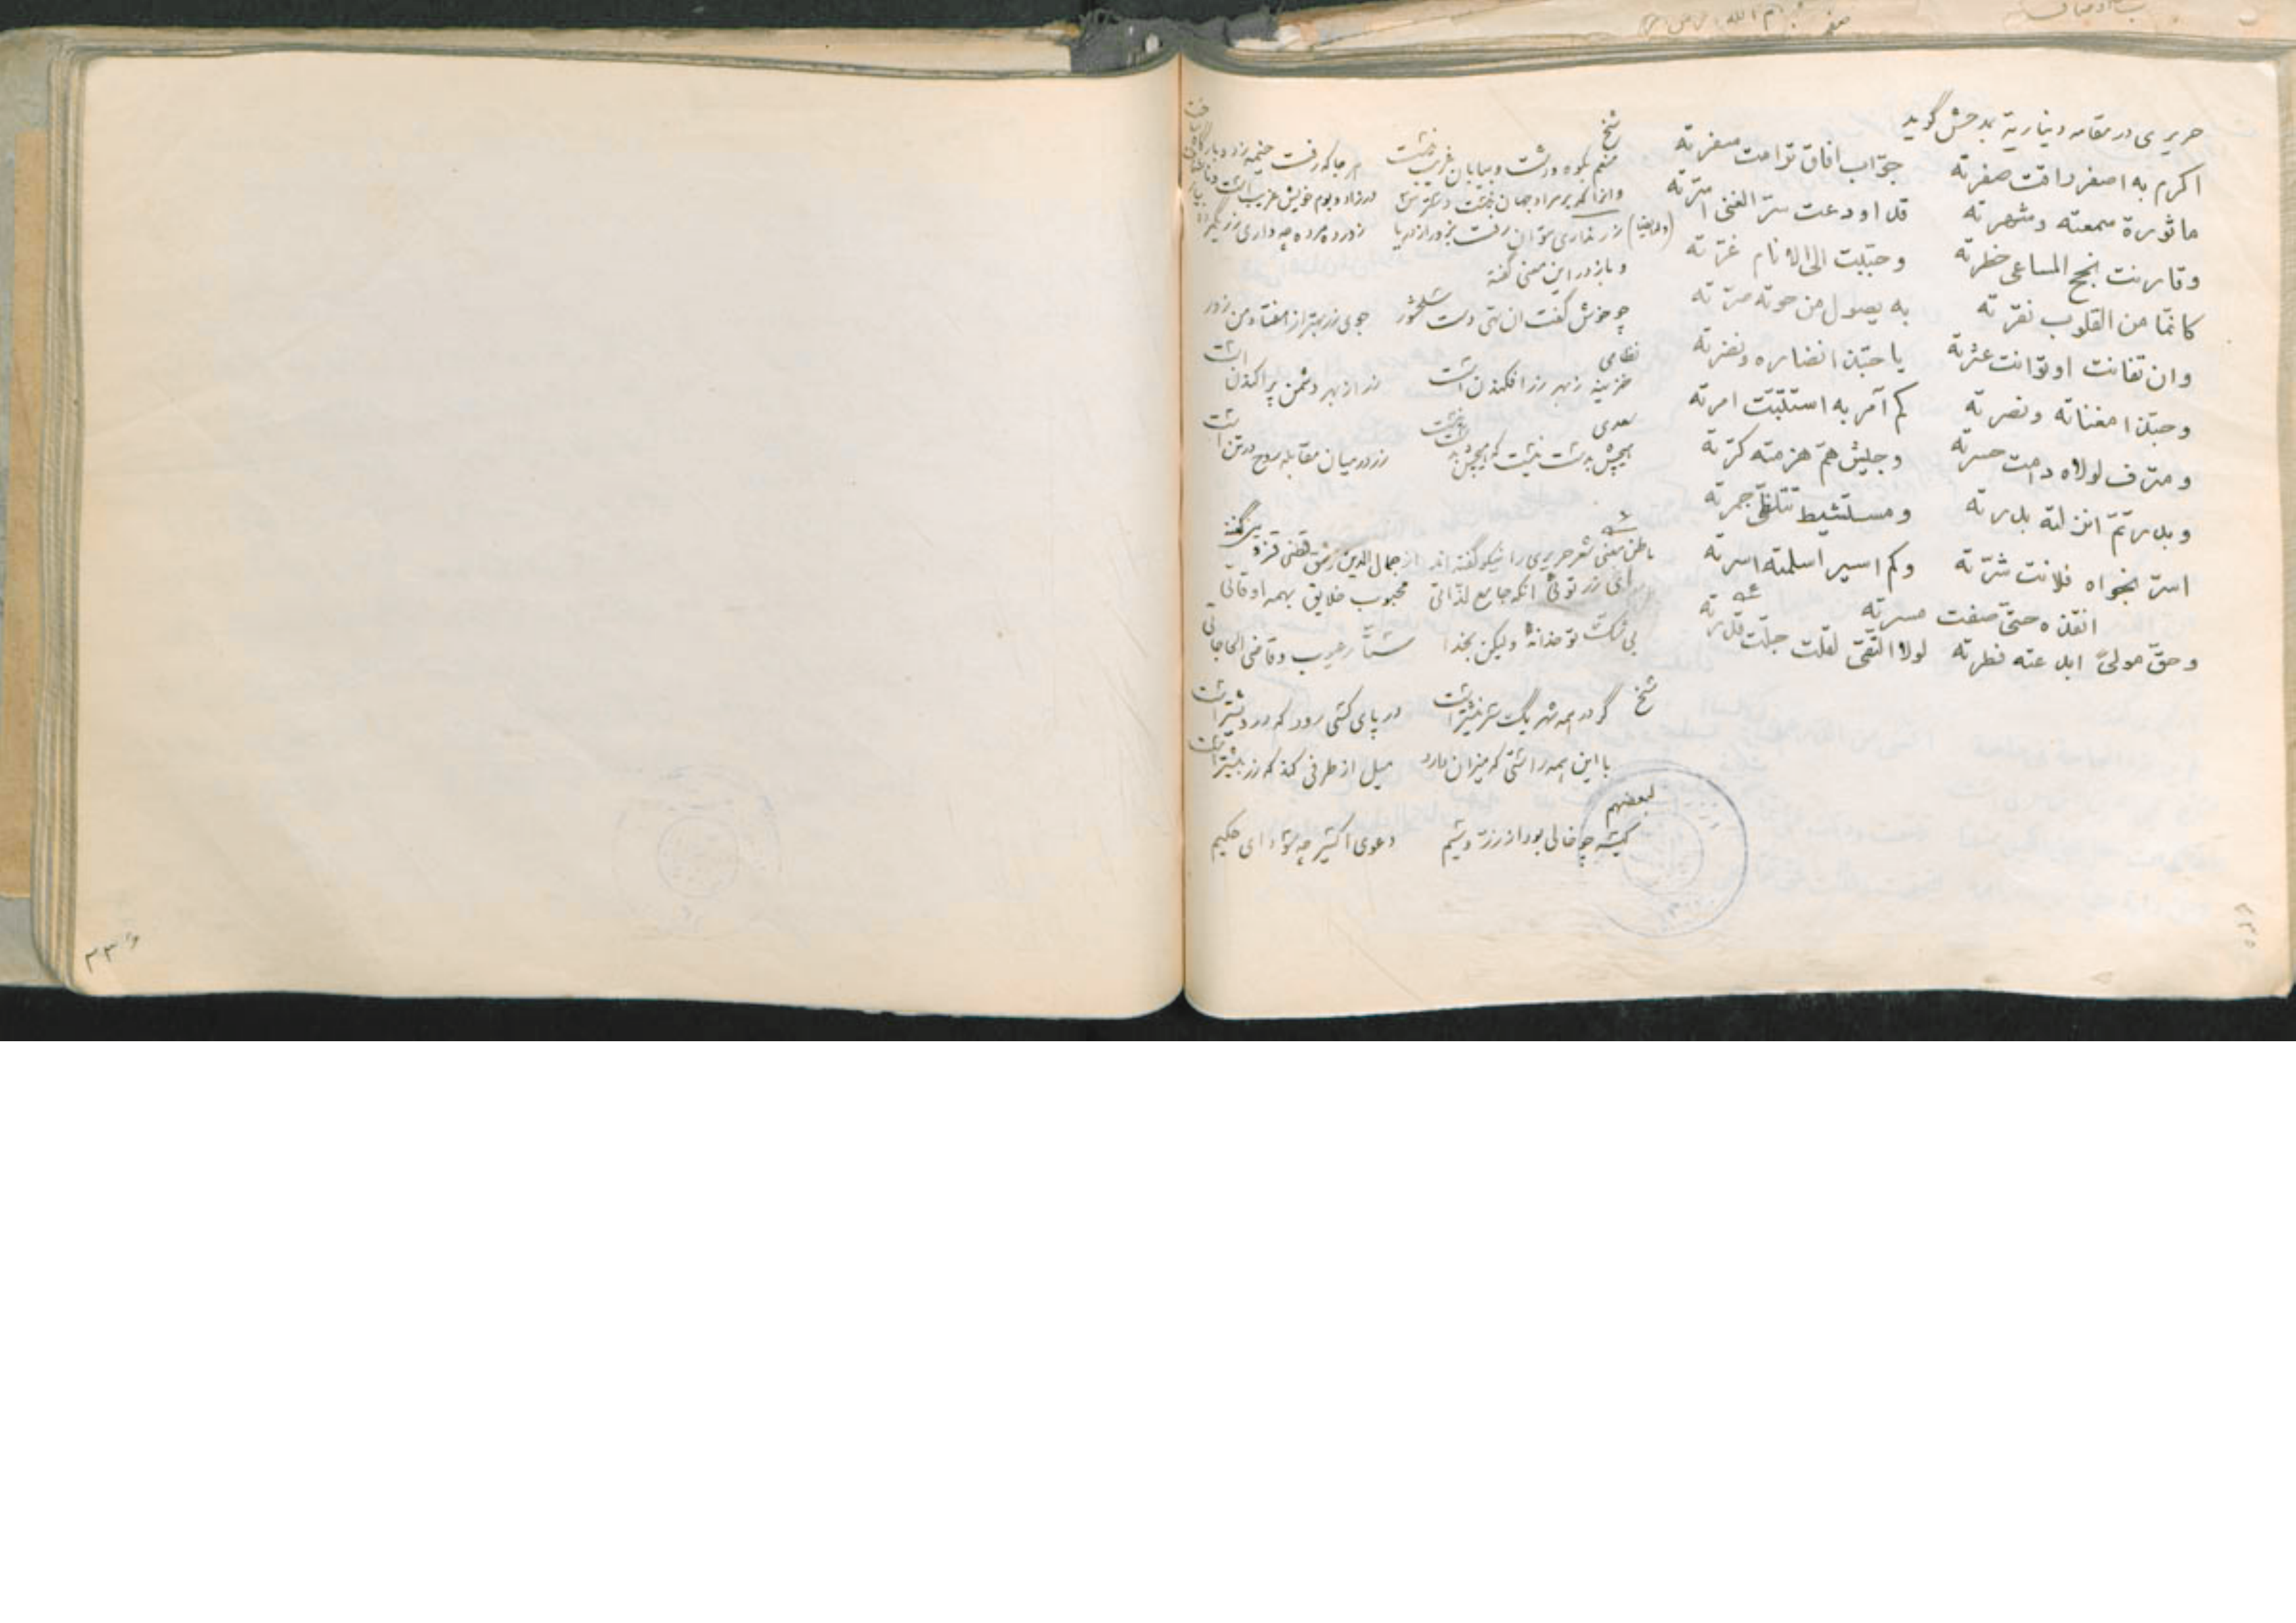 حریری در مقامه دیناریة بمدحش گوید
اکرم به اصفر راقت صفرته جوّاب افاق ترامت سفرته
ماثورة سمعته وشهرته قد اودعت سرّ الغنی اسرّته
وقارنت نجح المساعی خطرته وحبّبت الی الانام غرّته
کانّما من القلوب نقرته به یصول من حوته صرّته
وان تفانت اوتوانت عترته یا حبّذا نضاره ونضرته
وحبّذا مغناته ونصرته کم آمر به استتبّت امرته
ومترف لولاه دامت حسرته وجیش همّ هزمته کرّته
وبدر تمّ انزلته بدرته ومستشیط تتلظّی جمرته
اسرّ نجواه فلانت شرّته وکم اسیر اسلمته اسرته
انقذه حتّی صفت مسرته
وحقّ مولیً ابدعته فطرته لولا التّقیٰ لقلت جلّت قدرته
شیخ
منعم بکوه ودشت وبیابان غریب نیست هر جا که رفت خیمه زد و بارگاه ساخت
وانرا که بر مراد جهان نیست دسترس در زاد وبوم خویش غریبست و ناشناخت
(وله ایضا) زر نداری نتوان رفت بزور از دریا زور ده مرده چه داری زر یکمرده بیار
وباز در این معنی گفته
چو خوش گفت ان تهی دست سلحشور جوی زر بهتر از هفتاد من زور
نظامی
خزینه ز بهر زر افکندن است زر از بهر دشمن پراکندن است
سعدی
زر در میان مقابله روح در تن است
باطن معنی شعر حریری را نیکو گفته اند از جمال الدین
ای زر توئی انکه جامع لذّاتی محبوب خلایق بهمه اوقاتی
بی شک تو خدا نهٔ ولیکن بخدا ستّار عیوب وقاضی الحاجاتی
شیخ
گر در همه شهر یک سر نیشتر است در پای کسی رود که درویشتر است
با این همه راستی که میزان دارد میل از طرفی کند که زر بیشتر است
لبعضهم
کیسه چو خالی بود از زر وسیم دعوی اکسیر چه سود ای حکیم
۳۳۶